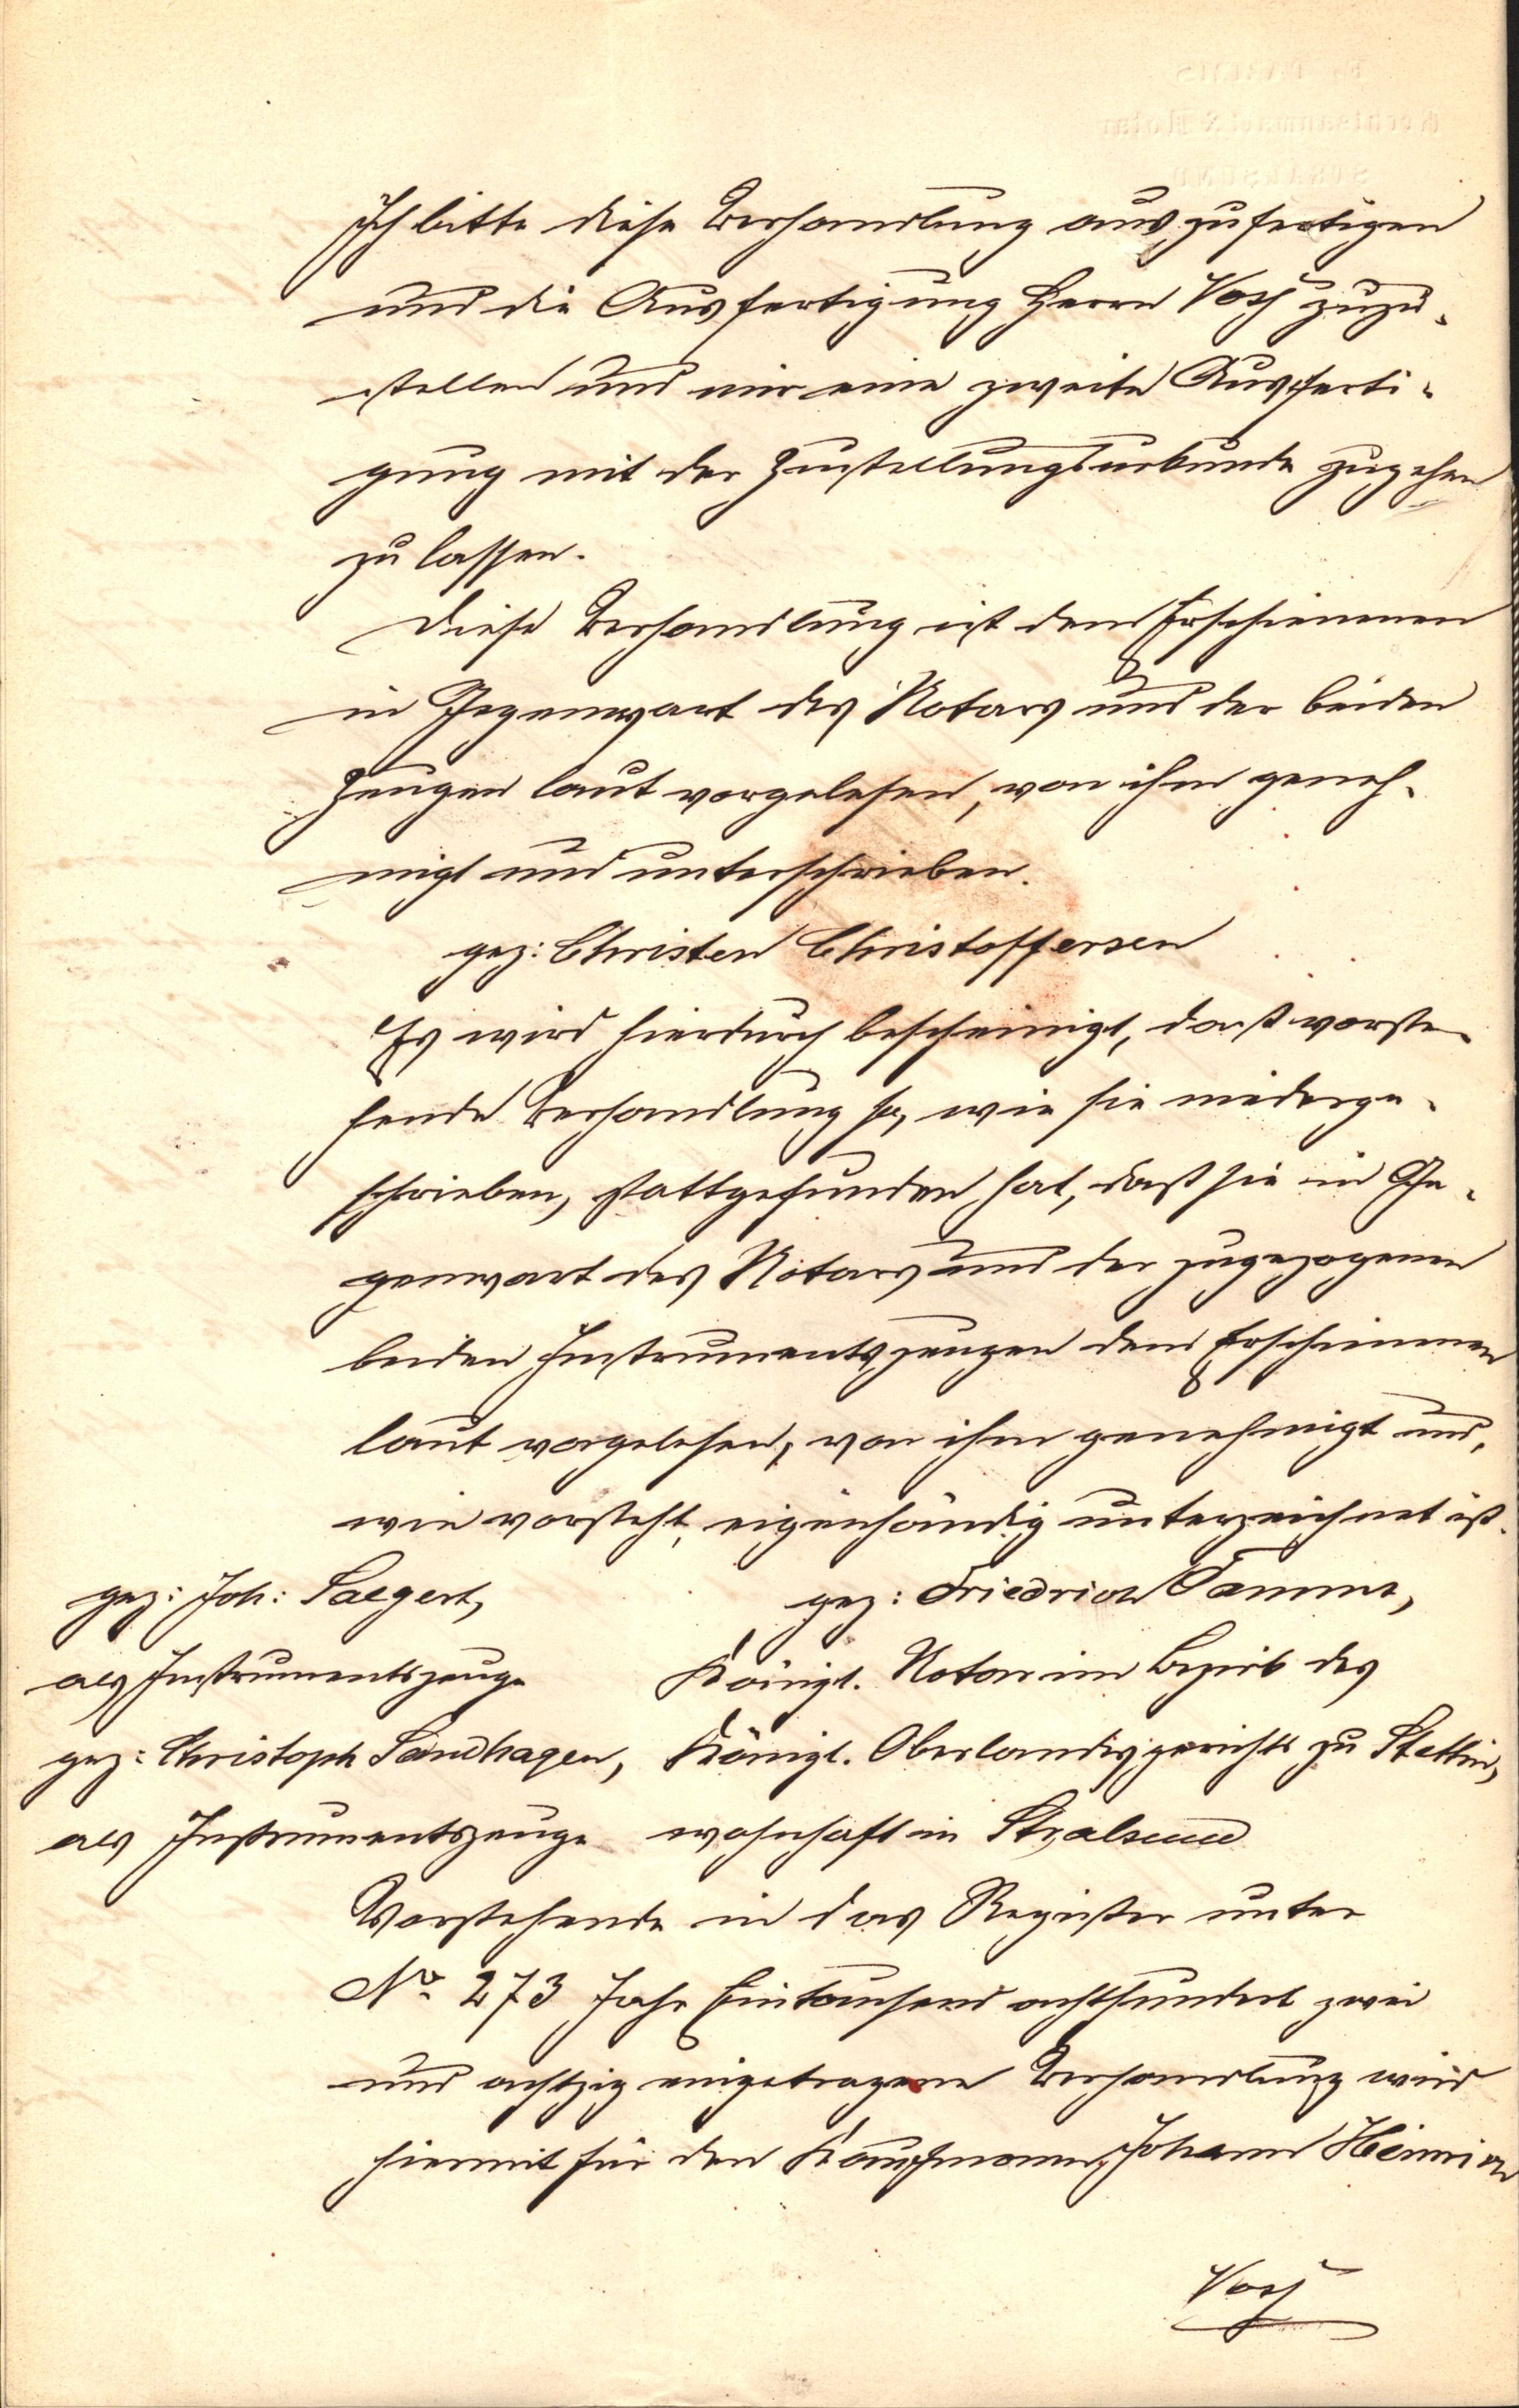 Ich bitte diese Verhandlung auszufertigen
und die Ausfertigung Herrn Voss zuzu-
stellen und mir eine zweite Ausferti-
gung mit der Zustellungsurkunde zugehen
zu lassen.
Diese Verhandlung ist dem Erschienenen
in Gegenwart des Notars und der beiden
Zeugen laut vorgelesen, von ihm geneh-
migt und unterschrieben.
gez: Christen Christoffersen
Es wird hierdurch bescheinigt, daß vorste-
hende Verhandlung so, wie sie niederge-
schrieben, stattgefunden hat, daß sie in Ge-
genwart des Notars und der zugezogenen
beiden Instrumentszeugen dem Erschienenen
laut vorgelesen, von ihm genehmigt und,
wie vorsteht, eigenhändig unterzeichnet ist.
gez: Joh: Saegert, gez: Friedrich Tamms,
als Instrumentszeuge Königl. Notar im Bezirk des
gez: Christoph Sandhagen, Königl. Oberlandesgerichts zu Stettin,
als Instrumentszeuge wohnhaft in Stralsund
Vorstehende in das Register unter
No 273 Jahr Eintausend achthundert zwei
und achtzig eingetragene Verhandlung wird
hiermit für den Kaufmann Johann Heinrich
Voss